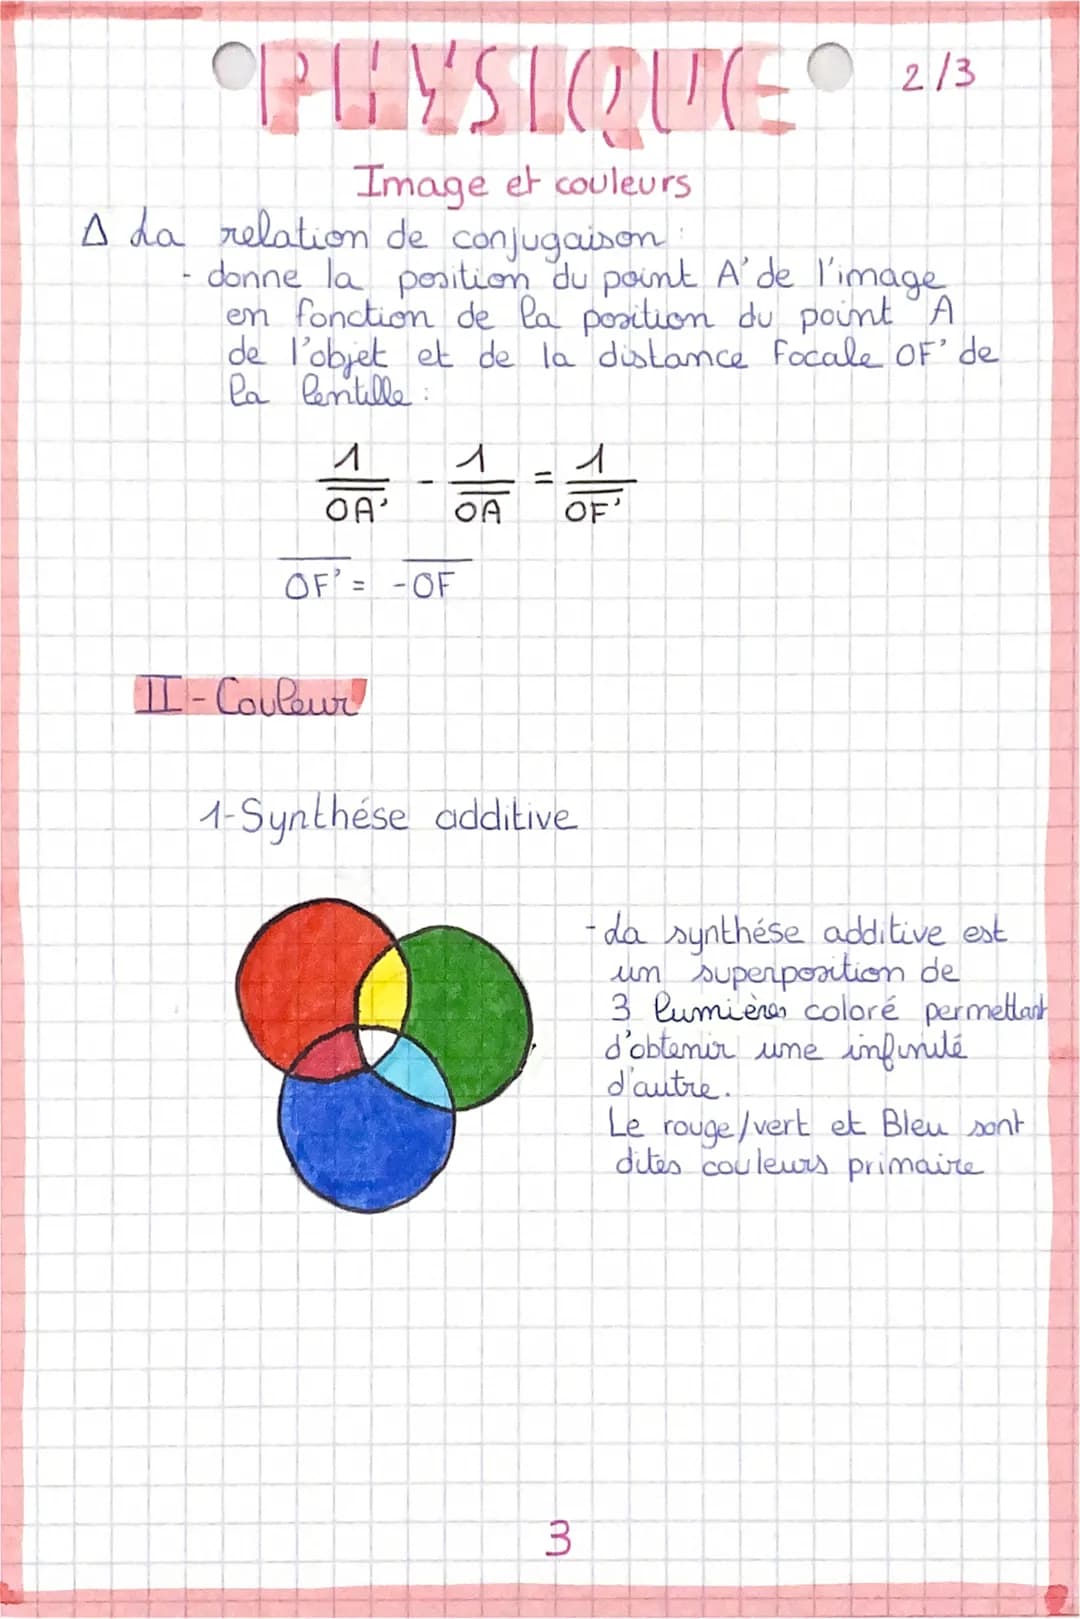 PHYSIQUE 2/3
Image et couleurs
Δ La relation de conjugaison :
- donne la position du point A' de l'image
en fonction de la position du point A
de l'objet et de la distance focale OF' de
la lentille :
1/O̅A̅'̅ - 1/O̅A̅ = 1/O̅F̅'̅
O̅F̅'̅ = -O̅F̅
II - Couleur
1-Synthése additive
- La synthése additive est
un superposition de
3 lumières coloré permettant
d'obtenir une infinité
d'autre.
Le rouge/vert et Bleu sont
dites couleurs primaire
3